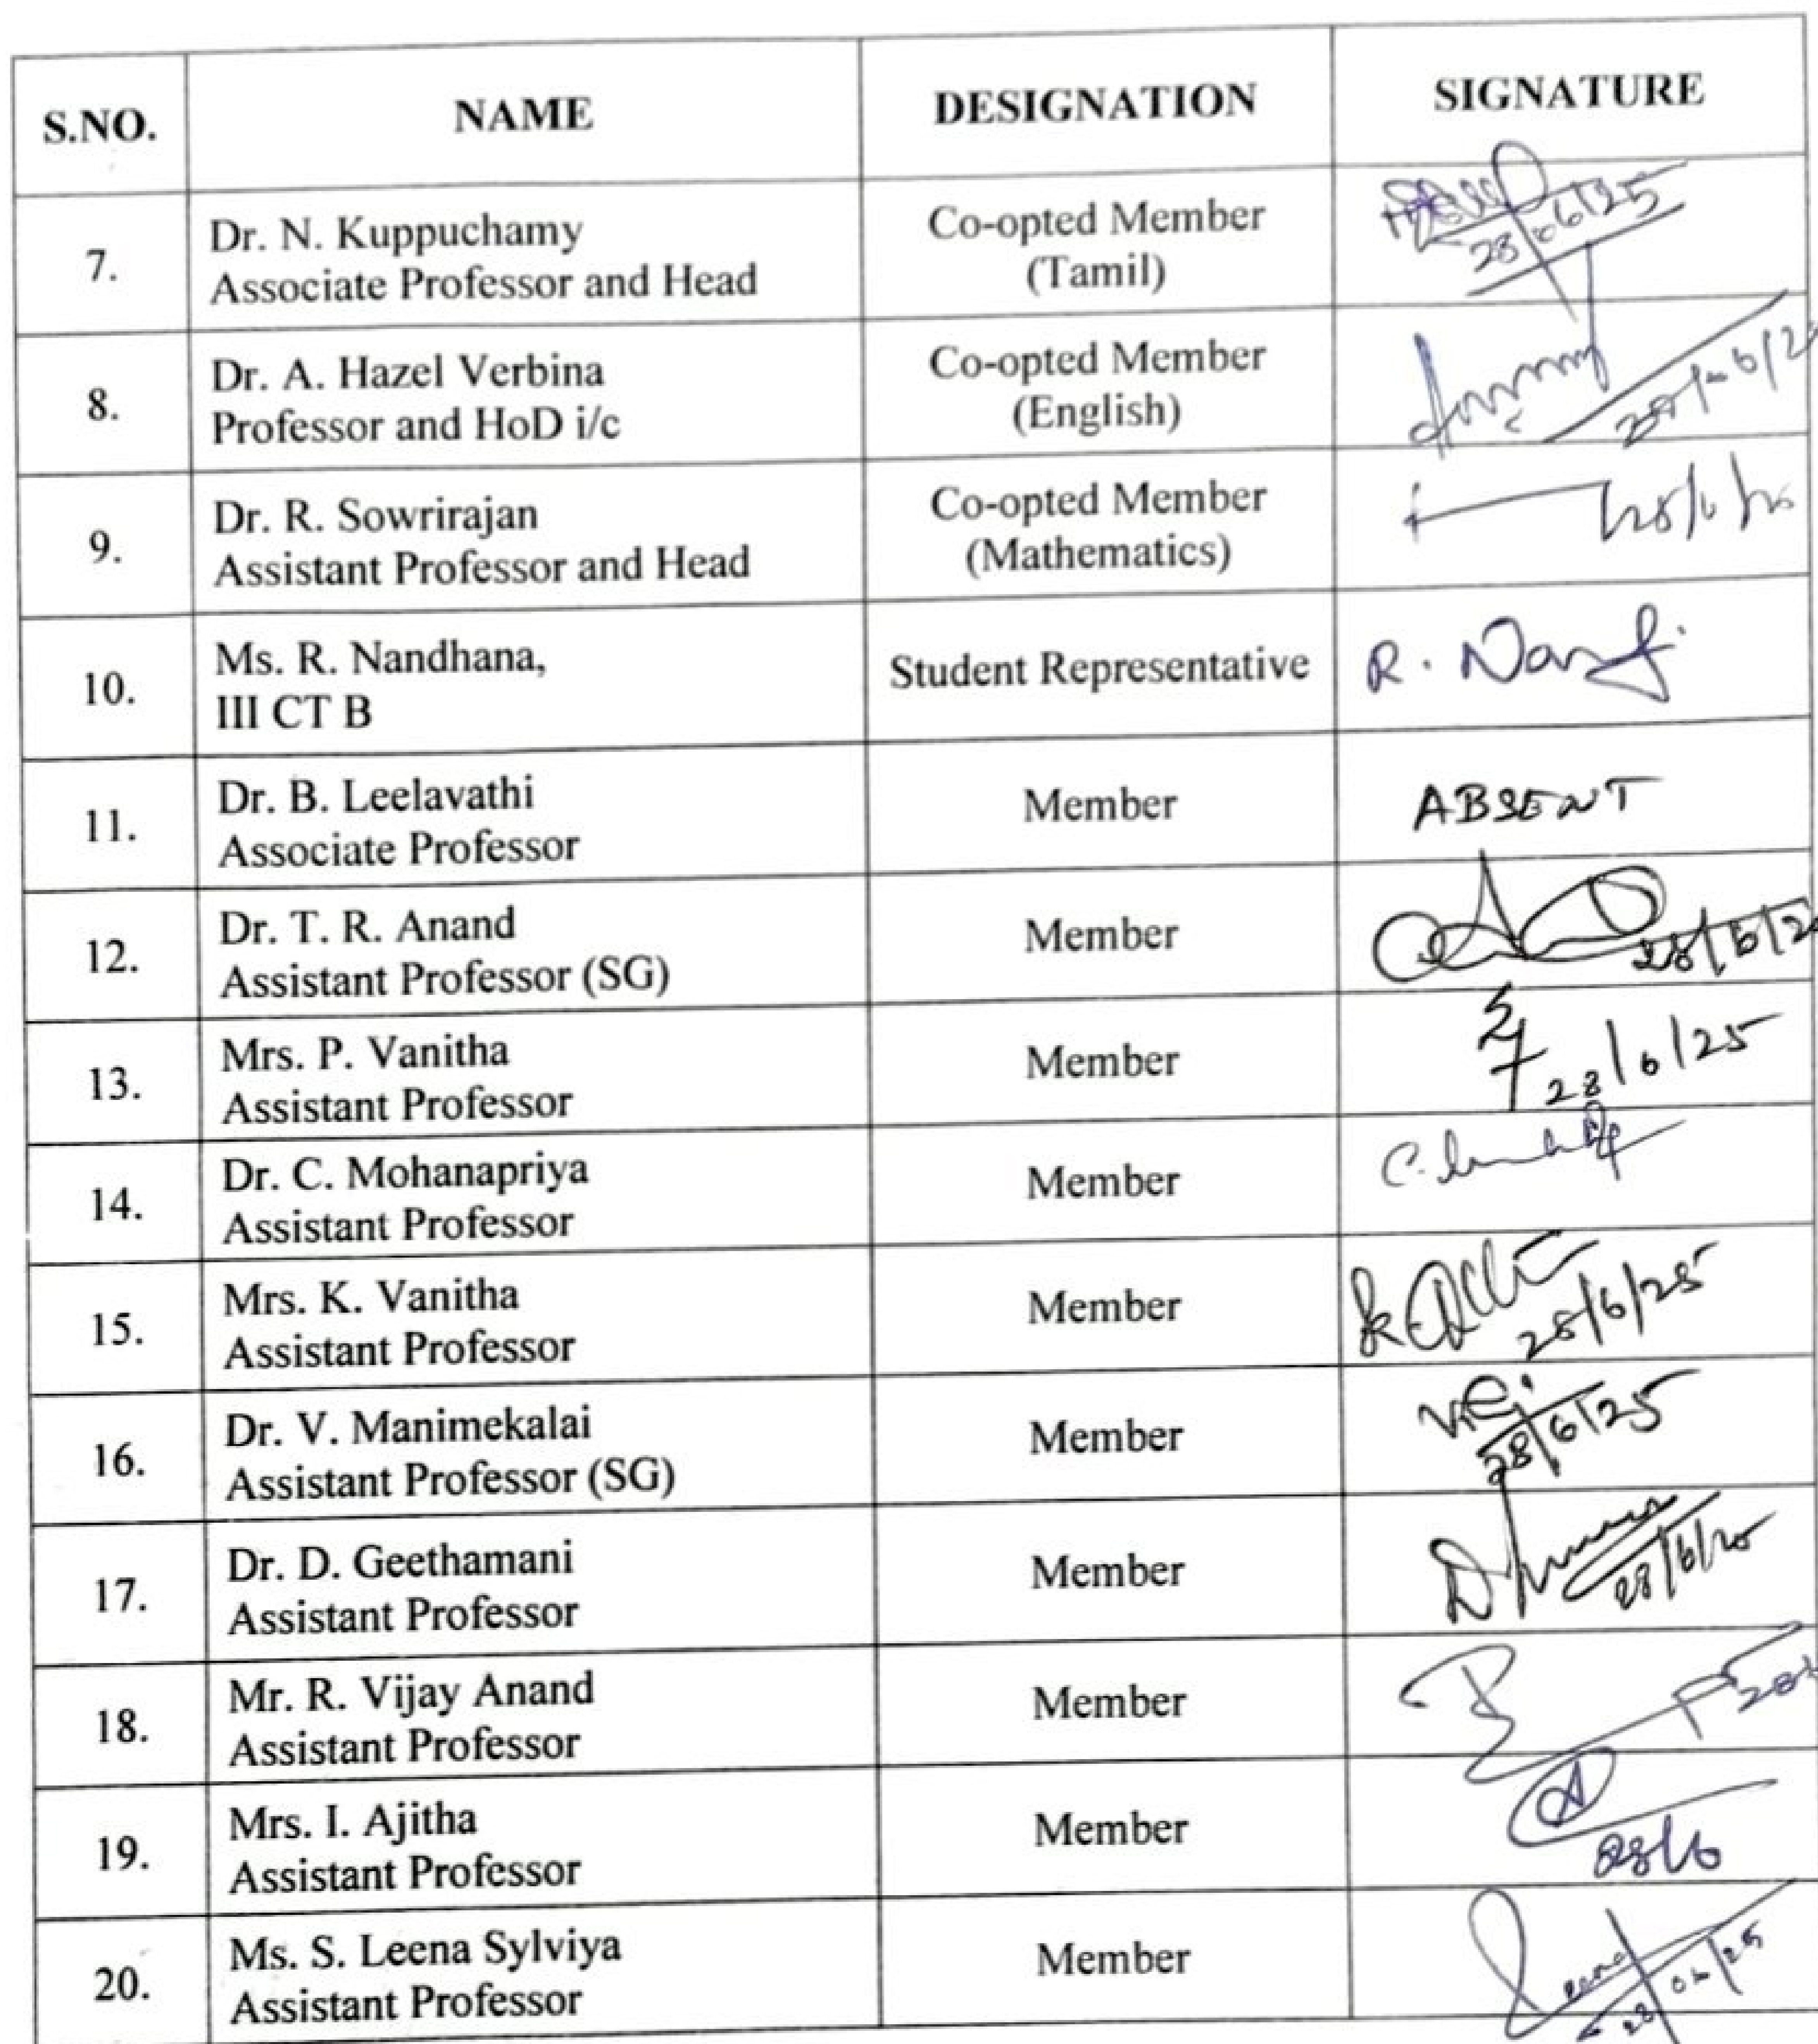 S.NO. NAME DESIGNATION SIGNATURE
7. Dr. N. Kuppuchamy
Associate Professor and Head
Co-opted Member
(Tamil)
28/06/25
8. Dr. A. Hazel Verbina
Professor and HoD i/c
Co-opted Member
(English)
9. Dr. R. Sowrirajan
Assistant Professor and Head
Co-opted Member
(Mathematics)
10. Ms. R. Nandhana,
III CT B
Student Representative
R.
11. Dr. B. Leelavathi
Associate Professor
Member
ABSENT
12. Dr. T. R. Anand
Assistant Professor (SG)
Member
13. Mrs. P. Vanitha
Assistant Professor
Member
28/6/25
14. Dr. C. Mohanapriya
Assistant Professor
Member
15. Mrs. K. Vanitha
Assistant Professor
Member
28/6/25
16. Dr. V. Manimekalai
Assistant Professor (SG)
Member
28/6/25
17. Dr. D. Geethamani
Assistant Professor
Member
28/6/25
18. Mr. R. Vijay Anand
Assistant Professor
Member
19. Mrs. I. Ajitha
Assistant Professor
Member
28/6
20. Ms. S. Leena Sylviya
Assistant Professor
Member
28/06/25